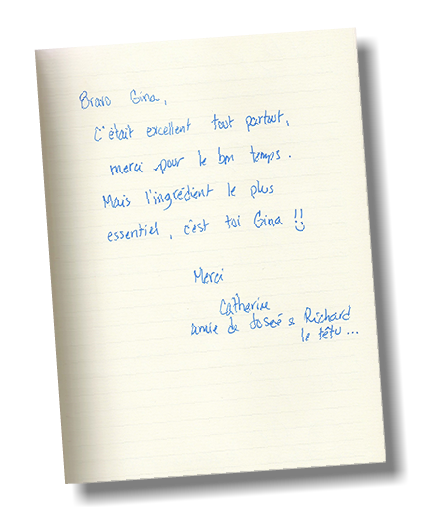 Bravo Gina,
C'était excellent tout partout,
merci pour le bon temps.
Mais l'ingrédient le plus
essentiel, c'est toi Gina !!
Merci
Catherine
amie de Josée & Richard
le têtu...